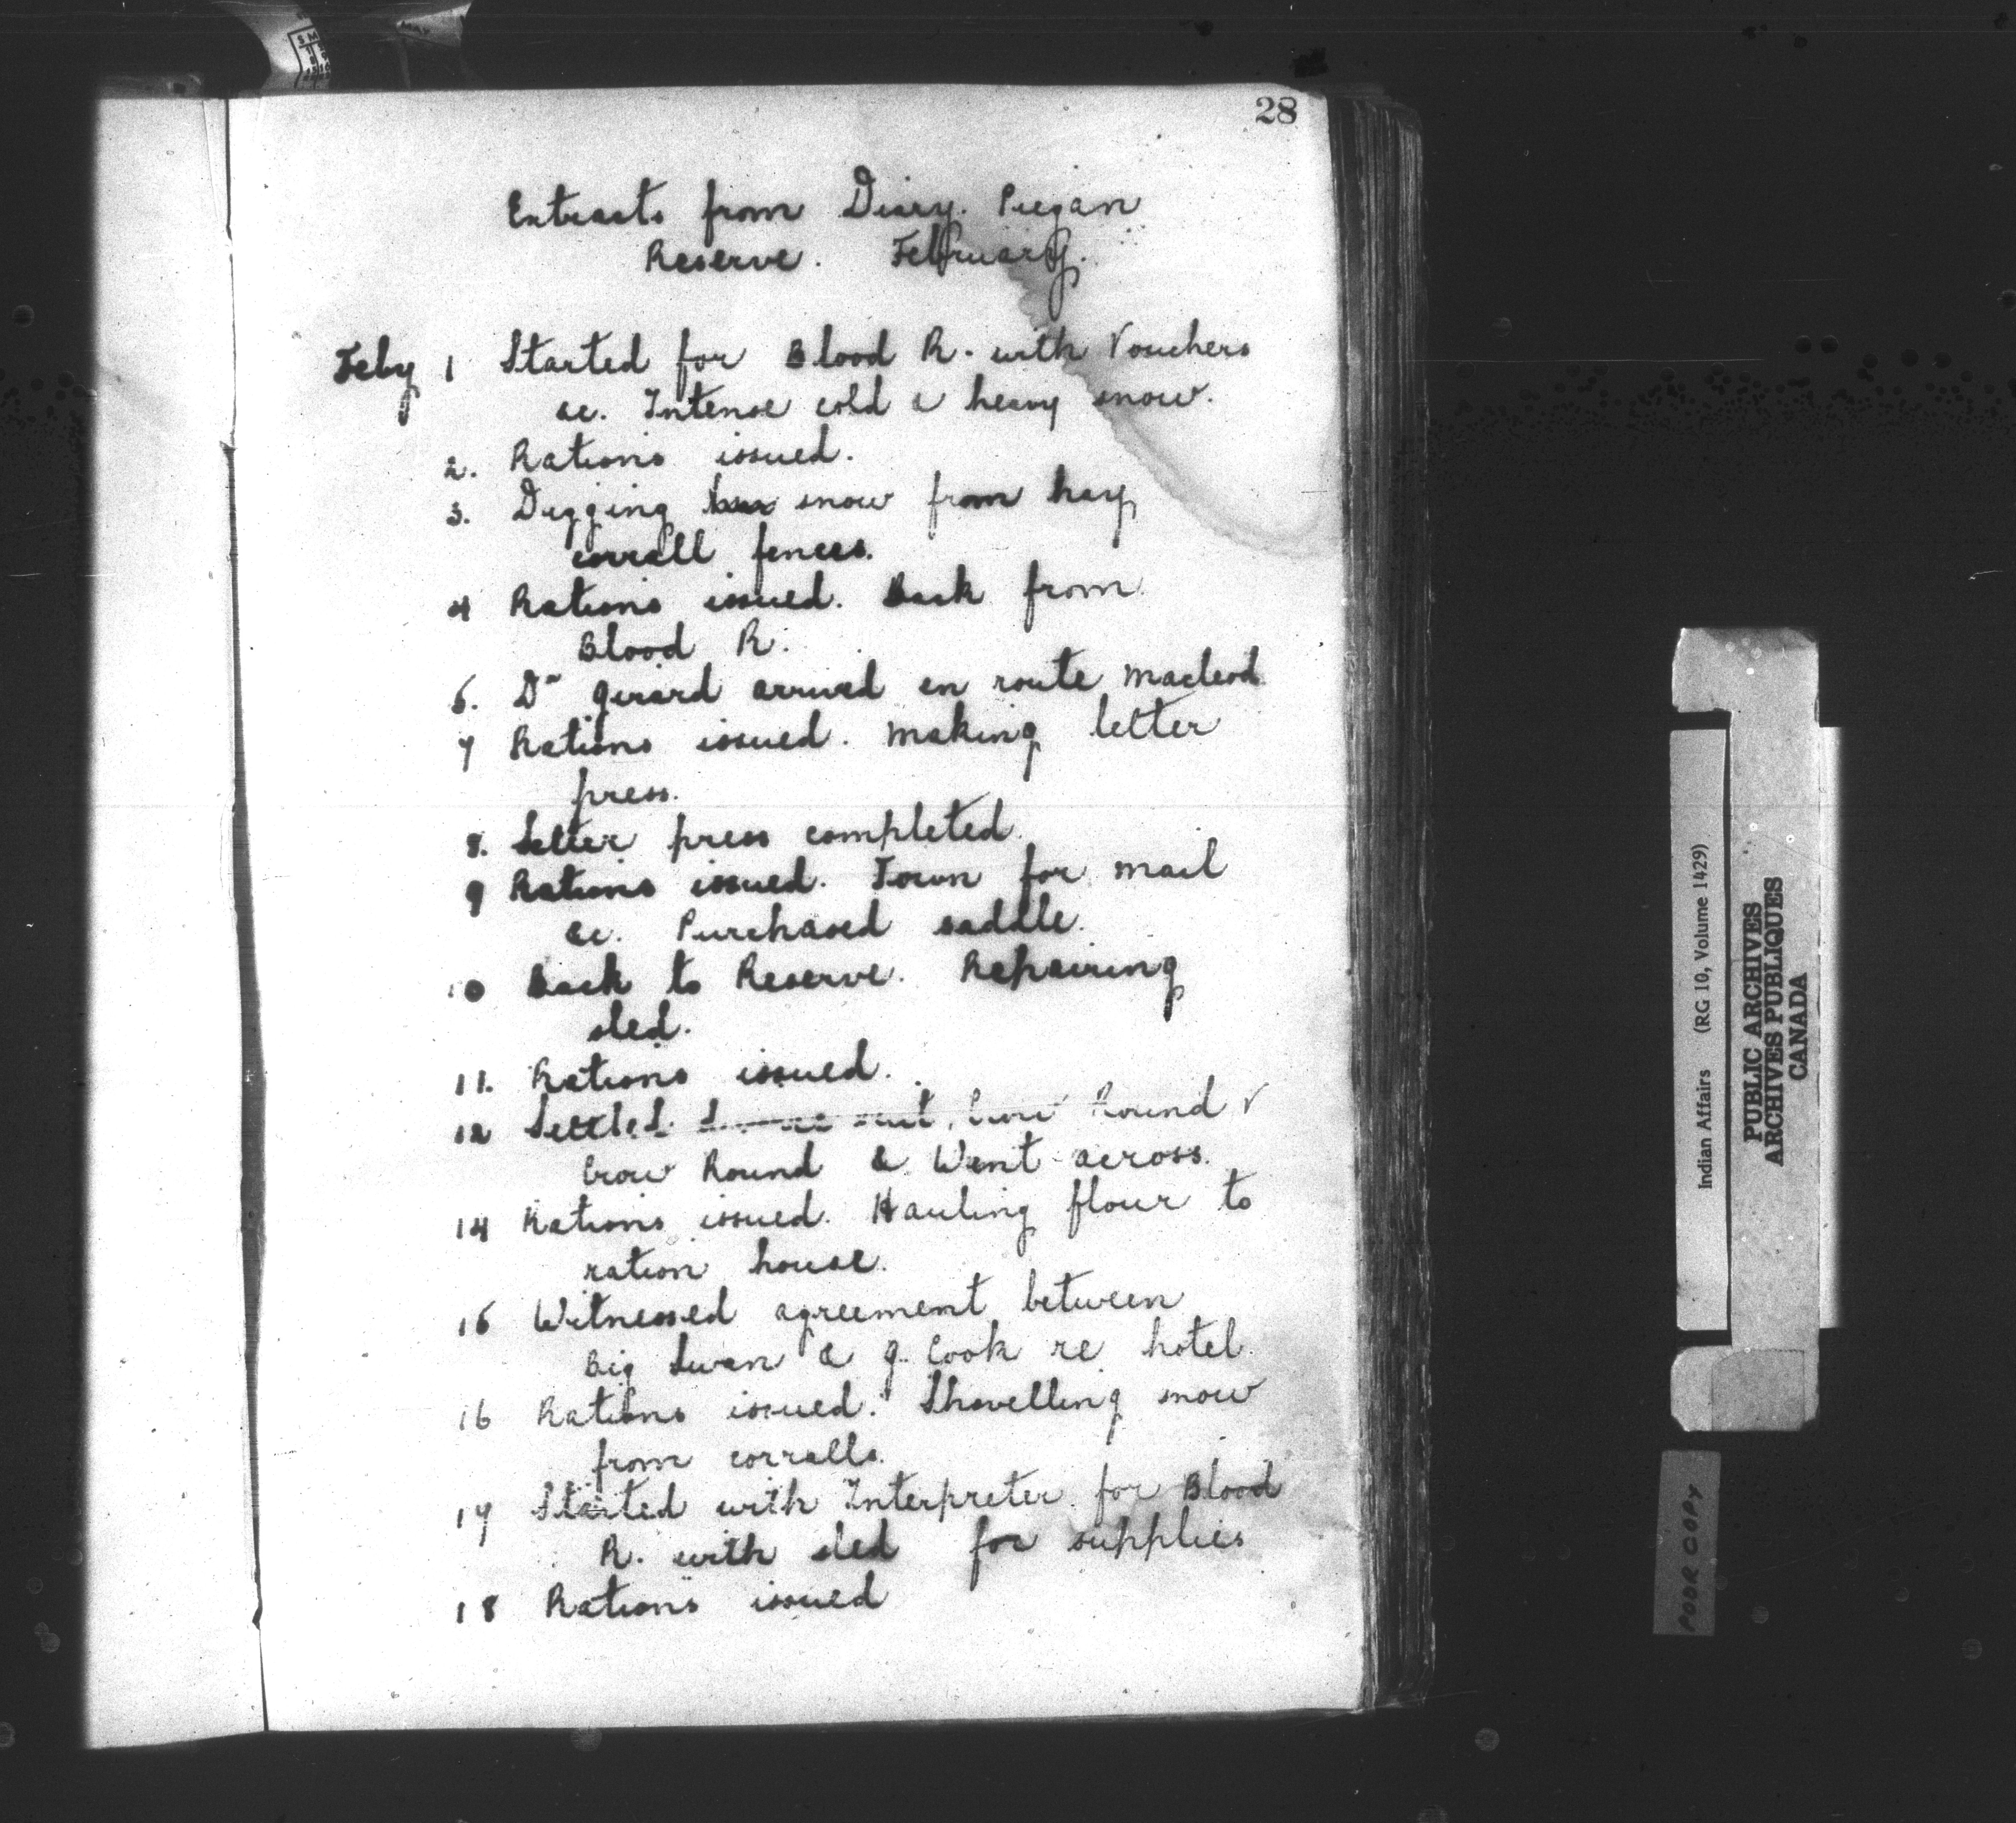 28
Extracts from Diary. Piegan
Reserve. February.
Feby 1 Started for Blood R. with Vouchers
&c. Intense cold & heavy snow.
2. Rations issued.
3. Digging snow from hay
corrall fences.
4 Rations issued. Back from
Blood R.
6. Dr Girard arrived en route Macleod
7 Rations issued. Making letter
press.
8. Letter press completed.
9 Rations issued. Town for mail
&c. Purchased saddle.
10 Back to Reserve. Repairing
sled.
11. Rations issued.
12 Settled Round
Crow Round & Went across.
14 Rations issued. Hauling flour to
ration house.
15 Witnessed agreement between
Big Swan & J. Cook re hotel.
16 Rations issued. Shovelling snow
from corralls.
17 Started with Interpreter for Blood
R. with sled for supplies
18 Rations issued
Indian Affairs (RG 10, Volume 1429)
PUBLIC ARCHIVES
ARCHIVES PUBLIQUES
CANADA
POOR COPY